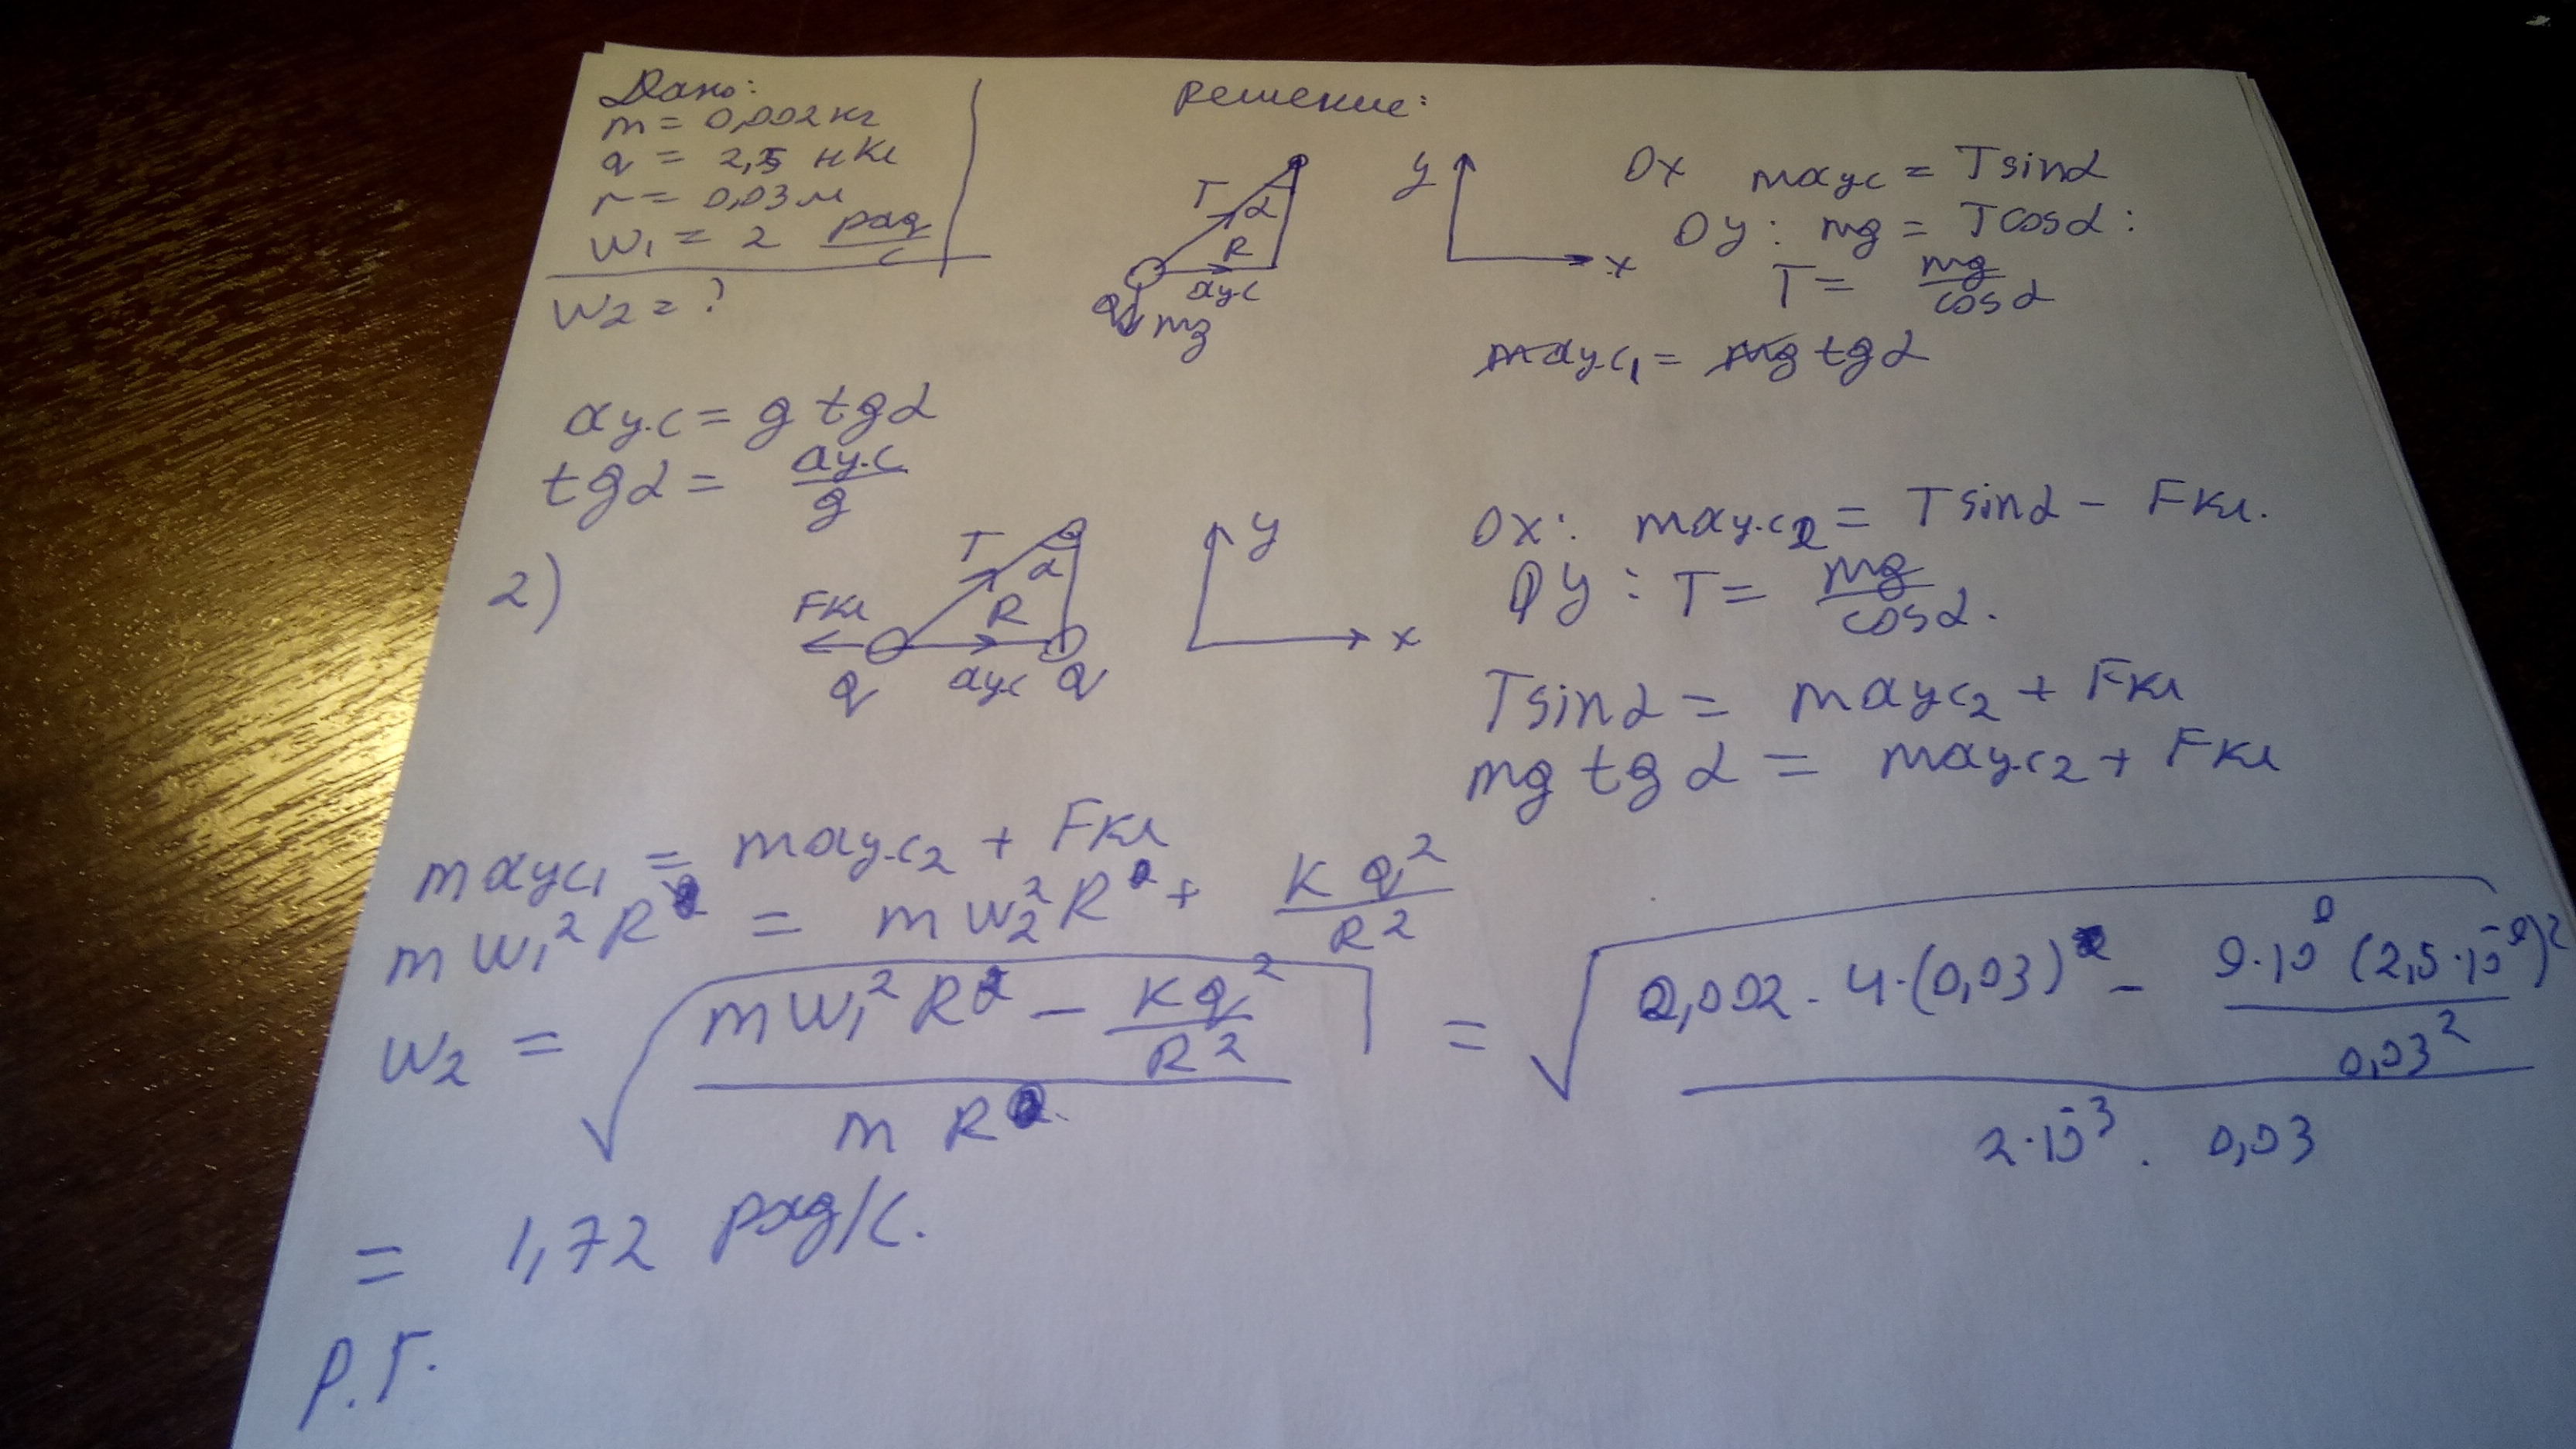 Дано:
m = 0,002 кг
q = 2,5 нКл
r = 0,03 м
W₁ = 2 рад/с
W₂ = ?
решение:
T α R aу.с mg Q
y x
OX maу.с = T sinα
OY: mg = T cosα:
T = mg/cosα
maу.с₁ = mg tgα
aу.с = g tgα
tgα = aу.с/g
2)
Fкл T α R Q aу.с Q
y x
OX: maу.с₂ = T sinα - Fкл.
OY: T = mg/cosα.
T sinα = maу.с₂ + Fкл
mg tgα = maу.с₂ + Fкл
maу.с₁ = maу.с₂ + Fкл
mW₁²R = mW₂²R + KQ²/R²
W₂ = √((mW₁²R - Kq²/R²)/(mR)) = √((0,002 · 4 · (0,03) - 9·10⁹(2,5·10⁻⁹)²/0,03²)/(2·10⁻³ · 0,03))
= 1,72 рад/с.
Р.Г.